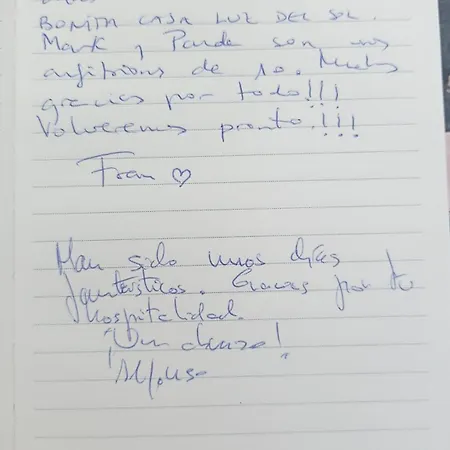 BONITA CASA LUZ DEL SOL.
Mark y Paude son unos
anfitrions de 10. Muchas
gracias por todo!!!
Volveremos pronto!!!
Fran ♡
Han sido unos días
fantásticos. Gracias por tu
hospitalidad.
¡Un abrazo!
Alfonso